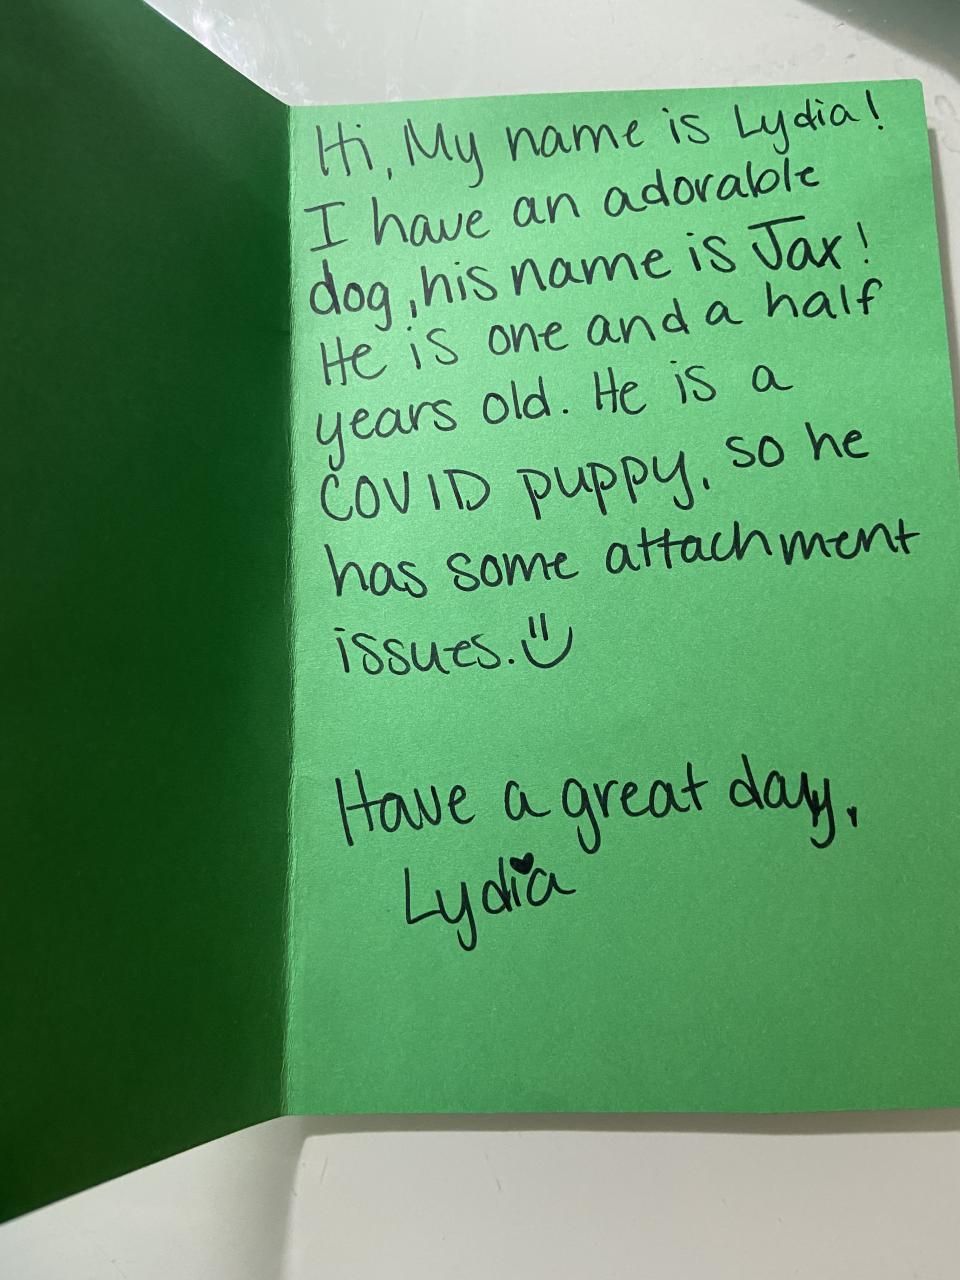 Hi, My name is Lydia!
I have an adorable
dog, his name is Jax!
He is one and a half
years old. He is a
COVID puppy, so he
has some attachment
issues.
Have a great day,
Lydia